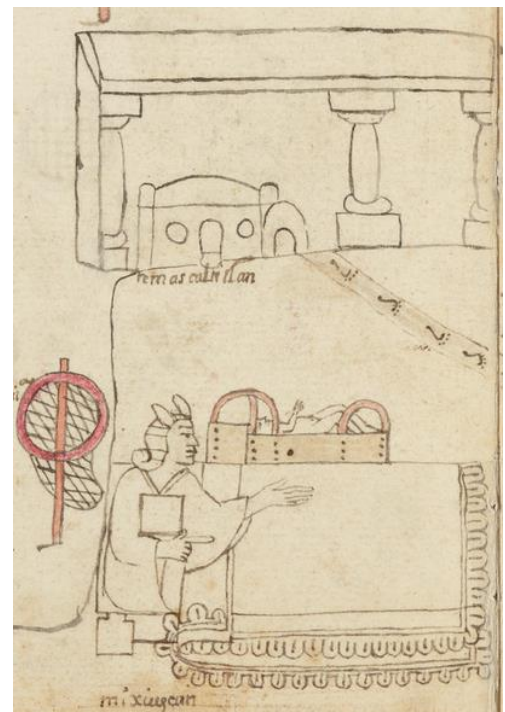 temascaltitlan
mixiuhcan